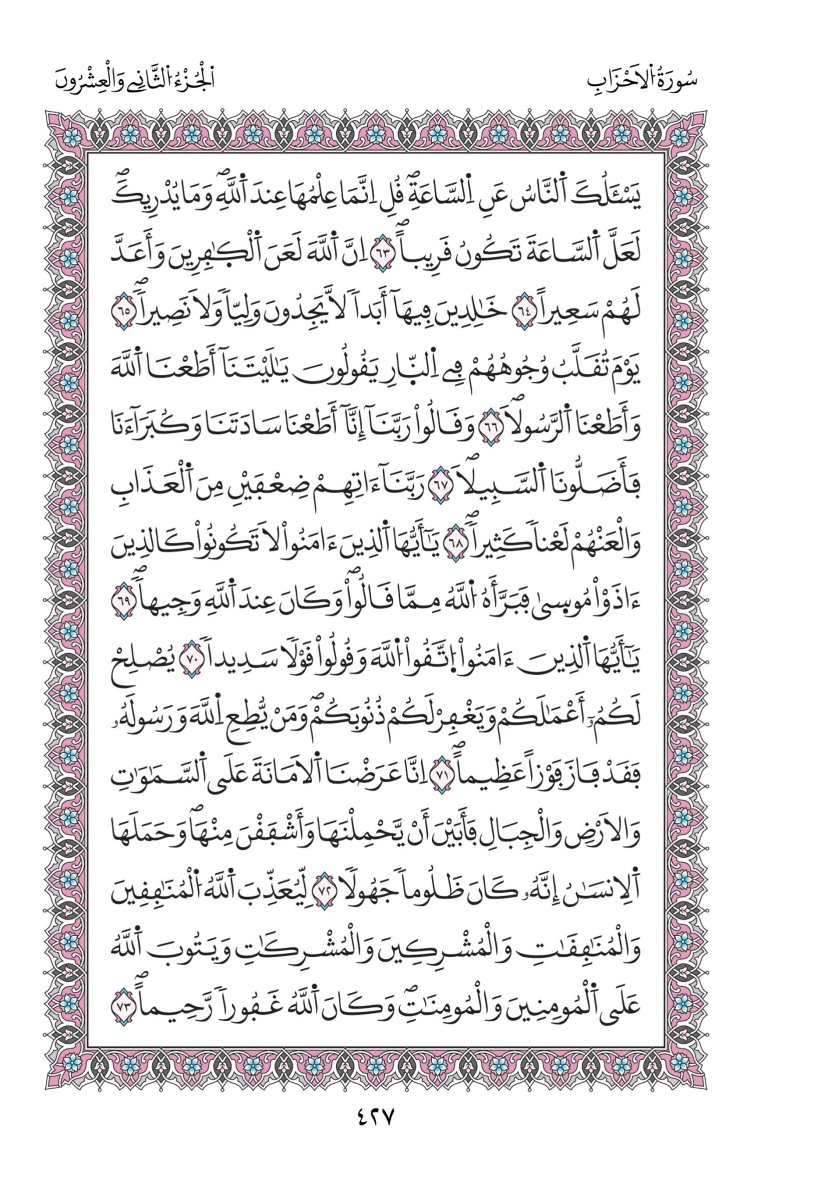 سُورَةُ اُ۬لَاحْزَابِ
اَ۬لْجُزْءُ اُ۬لثَّانِے وَالْعِشْرُونَ
يَسْـَٔلُكَ اَ۬لنَّاسُ عَنِ اِ۬لسَّاعَةِۖ قُلِ اِنَّمَا عِلْمُهَا عِندَ اَ۬للَّهِۖ وَمَا يُدْرِيكَۖ
لَعَلَّ اَ۬لسَّاعَةَ تَكُونُ قَرِيباًۖ ٦٣ اِنَّ اَ۬للَّهَ لَعَنَ اَ۬لْكٰ۪فِرِينَ وَأَعَدَّ
لَهُمْ سَعِيراً ٦٤ خَٰلِدِينَ فِيهَآ أَبَداٗ لَّا يَجِدُونَ وَلِيّاٗ وَلَا نَصِيراٗۖ ٦٥
يَوْمَ تُقَلَّبُ وُجُوهُهُمْ فِے اِ۬لنّ۪ارِ يَقُولُونَ يَٰلَيْتَنَآ أَطَعْنَا اَ۬للَّهَ
وَأَطَعْنَا اَ۬لرَّسُولَاۖ ٦٦ وَقَالُواْ رَبَّنَآ إِنَّآ أَطَعْنَا سَادَتَنَا وَكُبَرَآءَنَا
فَأَضَلُّونَا اَ۬لسَّبِيلَاۖ ٦٧ رَبَّنَآ ءَاتِهِمْ ضِعْفَيْنِ مِنَ اَ۬لْعَذَابِ
وَالْعَنْهُمْ لَعْناٗ كَثِيراٗۖ ٦٨ يَٰٓأَيُّهَا اَ۬لذِينَ ءَامَنُواْ لَا تَكُونُواْ كَالذِينَ
ءَاذَوْاْ مُوس۪يٰ فَبَرَّأَهُ اُ۬للَّهُ مِمَّا قَالُواْۖ وَكَانَ عِندَ اَ۬للَّهِ وَجِيهاٗۖ ٦٩
يَٰٓأَيُّهَا اَ۬لذِينَ ءَامَنُواْ اُ۪تَّقُواْ اُ۬للَّهَ وَقُولُواْ قَوْلٗا سَدِيداٗ ٧٠ يُصْلِحْ
لَكُمُۥٓ أَعْمَٰلَكُمْ وَيَغْفِرْ لَكُمْ ذُنُوبَكُمْۖ وَمَنْ يُّطِعِ اِ۬للَّهَ وَرَسُولَهُۥ
فَقَدْ فَازَ فَوْزاً عَظِيماًۖ ٧١ اِنَّا عَرَضْنَا اَ۬لَامَانَةَ عَلَي اَ۬لسَّمَٰوَٰتِ
وَالَارْضِ وَالْجِبَالِ فَأَبَيْنَ أَنْ يَّحْمِلْنَهَا وَأَشْفَقْنَ مِنْهَاۖ وَحَمَلَهَا
اَ۬لِانسَٰنُ إِنَّهُۥ كَانَ ظَلُوماٗ جَهُولٗا ٧٢ لِّيُعَذِّبَ اَ۬للَّهُ اُ۬لْمُنَٰفِقِينَ
وَالْمُنَٰفِقَٰتِ وَالْمُشْرِكِينَ وَالْمُشْرِكَٰتِ وَيَتُوبَ اَ۬للَّهُ
عَلَي اَ۬لْمُومِنِينَ وَالْمُومِنَٰتِۖ وَكَانَ اَ۬للَّهُ غَفُوراٗ رَّحِيماٗۖ ٧٣
٤٢٧